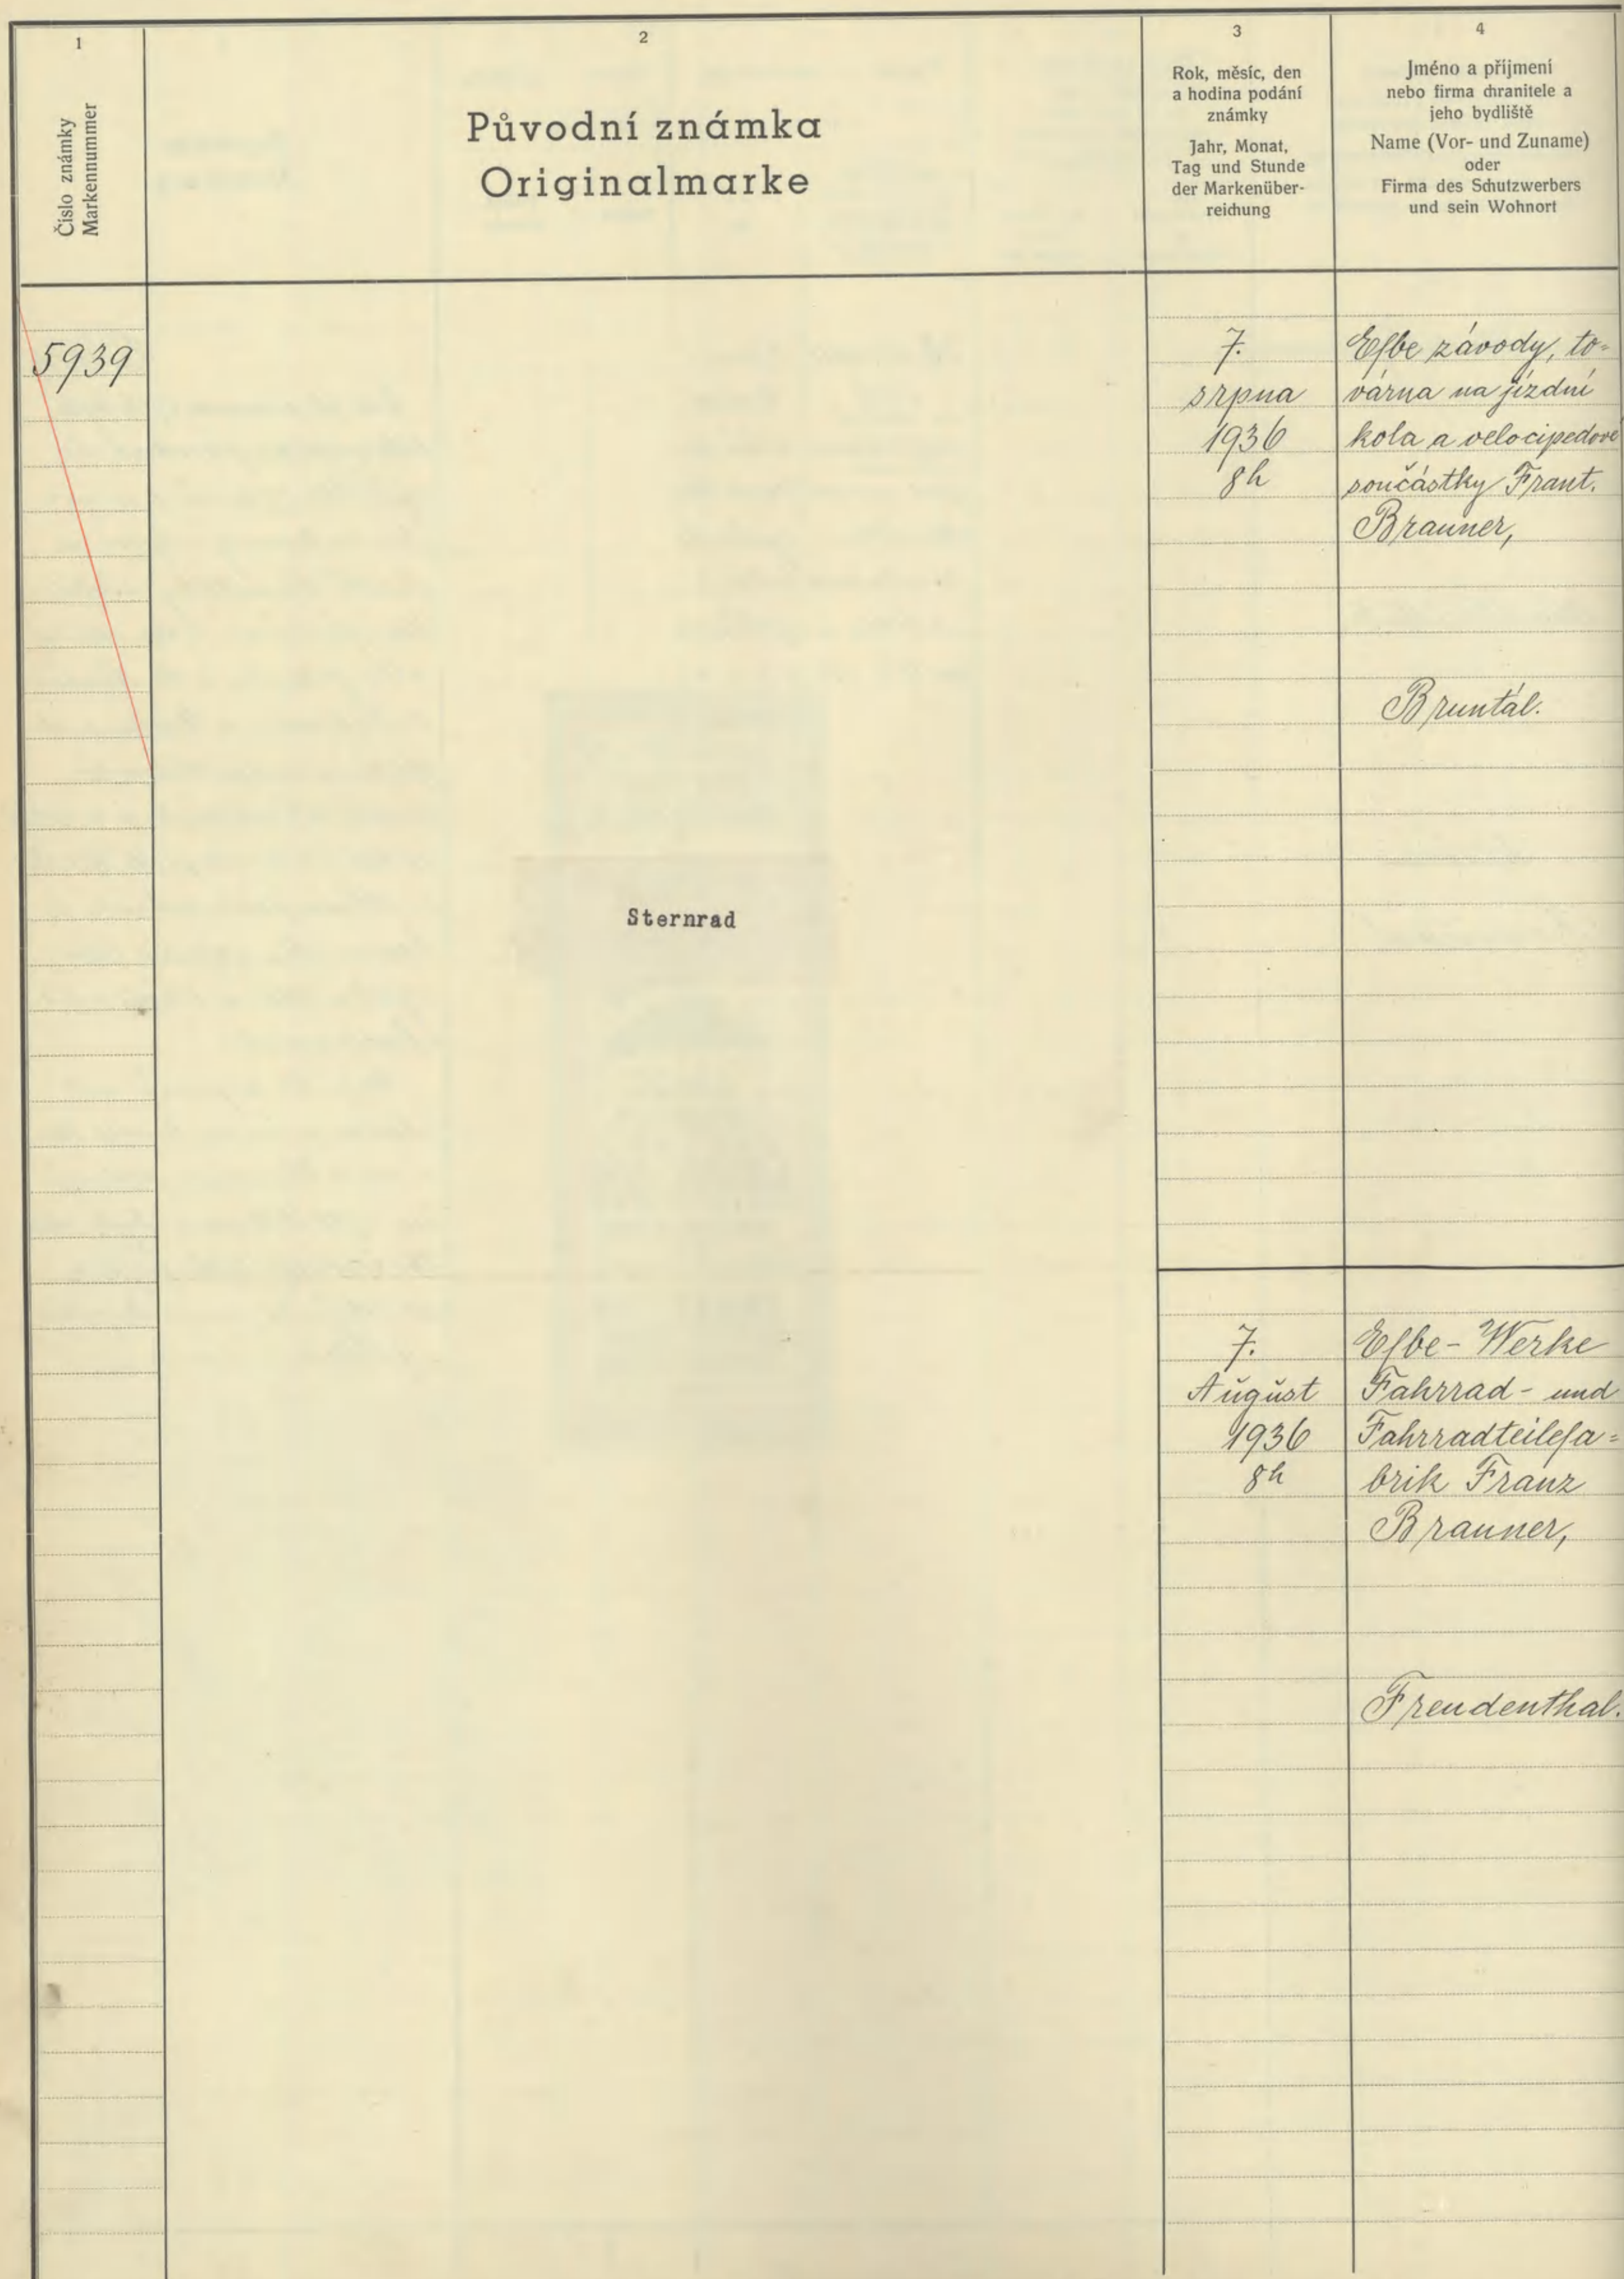 1
Číslo známky
Markennummer
2
Původní známka
Originalmarke
3
Rok, měsíc, den
a hodina podání
známky
Jahr, Monat,
Tag und Stunde
der Markenüber-
reichung
4
Jméno a příjmení
nebo firma chranitele a
jeho bydliště
Name (Vor- und Zuname)
oder
Firma des Schutzwerbers
und sein Wohnort
5939
7.
srpna
1936
8h
Efbe závody, to-
várna na jízdní
kola a velocipedové
součástky Frant.
Brauner,
Bruntál.
Sternrad
7.
August
1936
8h
Efbe-Werke
Fahrrad- und
Fahrradteilefa-
brik Franz
Brauner,
Freudenthal.